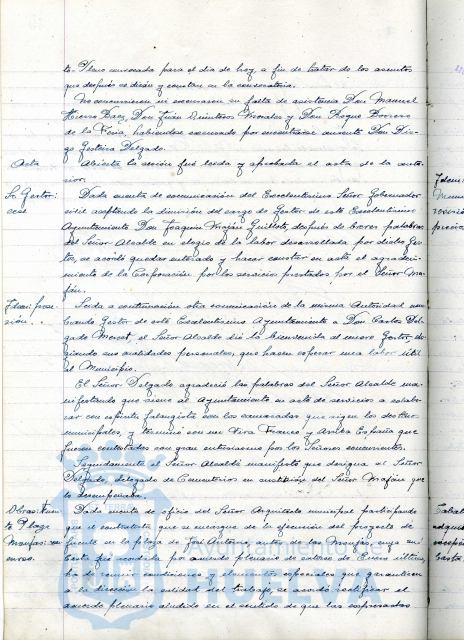 to Pleno convocada para el dia de hoy, a fin de tratar de los asuntos
que después se dirán y constan en la convocatoria.
No concurrieron ni excusaron su falta de asistencia Don Manuel
Báez, Don Juan Quintero Morales y Don Roque Borrero
de la Feria, habiéndose excusado por encontrarse ausente Don Die-
go Delgado.
Acta Abierta la sesión fué leida y aprobada el acta de la ante-
rior.
Dada cuenta de comunicación del Excelentísimo Señor Gobernador
civil aceptando la dimisión del cargo de Gestor de este Excelentísimo
Ayuntamiento Don Joaquín Mafán Guillote, después de breves palabras
del Señor Alcalde en elogio de la labor desarrollada por dicho Ges-
tor, se acordó quedar enterado y hacer constar en acta el agradeci-
miento de la Corporación por los servicios prestados por el Señor Ma-
fán.
Idem: pose-
sión. Leida a continuación otra comunicación de la misma Autoridad nom-
brando Gestor de este Excelentísimo Ayuntamiento a Don Carlos Del-
gado el Señor Alcalde dió la bienvenida al nuevo Gestor, elo-
giando sus cualidades personales, que hacen esperar una labor útil
al Municipio.
El Señor Delgado agradeció las palabras del Señor Alcalde ma-
nifestando que viene al Ayuntamiento en acto de servicio a colabo-
rar con espíritu falangista con los camaradas que rigen los destinos
municipales, y terminó con un Viva Franco y Arriba España que
fueron contestados con gran entusiasmo por los Señores concurrentes.
Seguidamente el Señor Alcalde manifestó que designa al Señor
Delgado, delegado de Cementerios en sustitución del Señor Mafán que
lo desempeñaba.
Obras: Fuen-
te Plaza
Monjas: con-
curso. Dada cuenta de oficio del Señor Arquitecto municipal participando
que el contratista que se encargue de la ejecución del proyecto de
fuente en la plaza de José Antonio, antes de las Monjas, cuya su-
basta fué acordada por acuerdo plenario de catorce de Enero último,
ha de reunir condiciones y elementos especiales que garanticen
a la dirección la calidad del trabajo, se acordó rectificar el
acuerdo plenario aludido en el sentido de que las expresadas
Ayuntamiento de
HUELVA